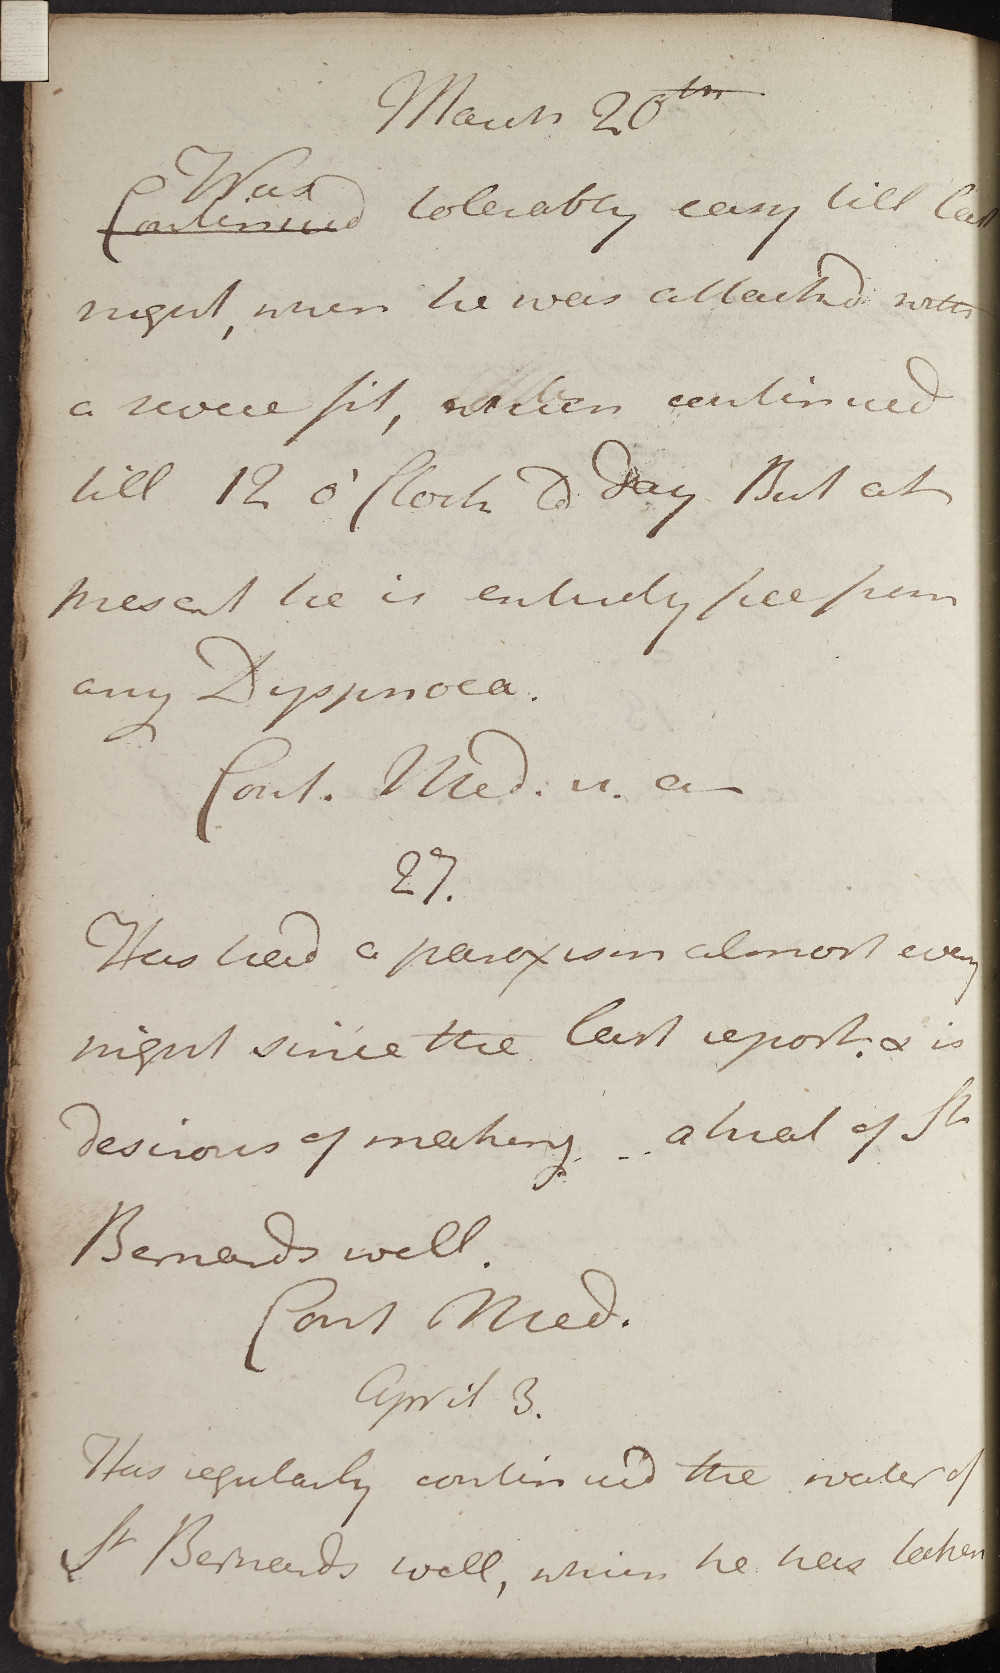 March 20th
Was
Continued tolerably easy till last
night, when he was attack'd with
a severe fit, which continued
till 12 o' Clock to day But at
present he is entirely free from
any Dyspnoea.
Cont. Med. u. a
27.
Has had a paroxism almost every
night since the last report. & is
desirous of making a trial of St
Bernards well.
Cont Med.
April 3.
Has regularly continued the water of
St Bernards well, which he has taken